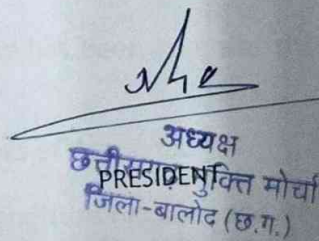 अध्यक्ष
छत्तीसगढ़ मुक्ति मोर्चा
PRESIDENT
जिला-बालोद (छ.ग.)